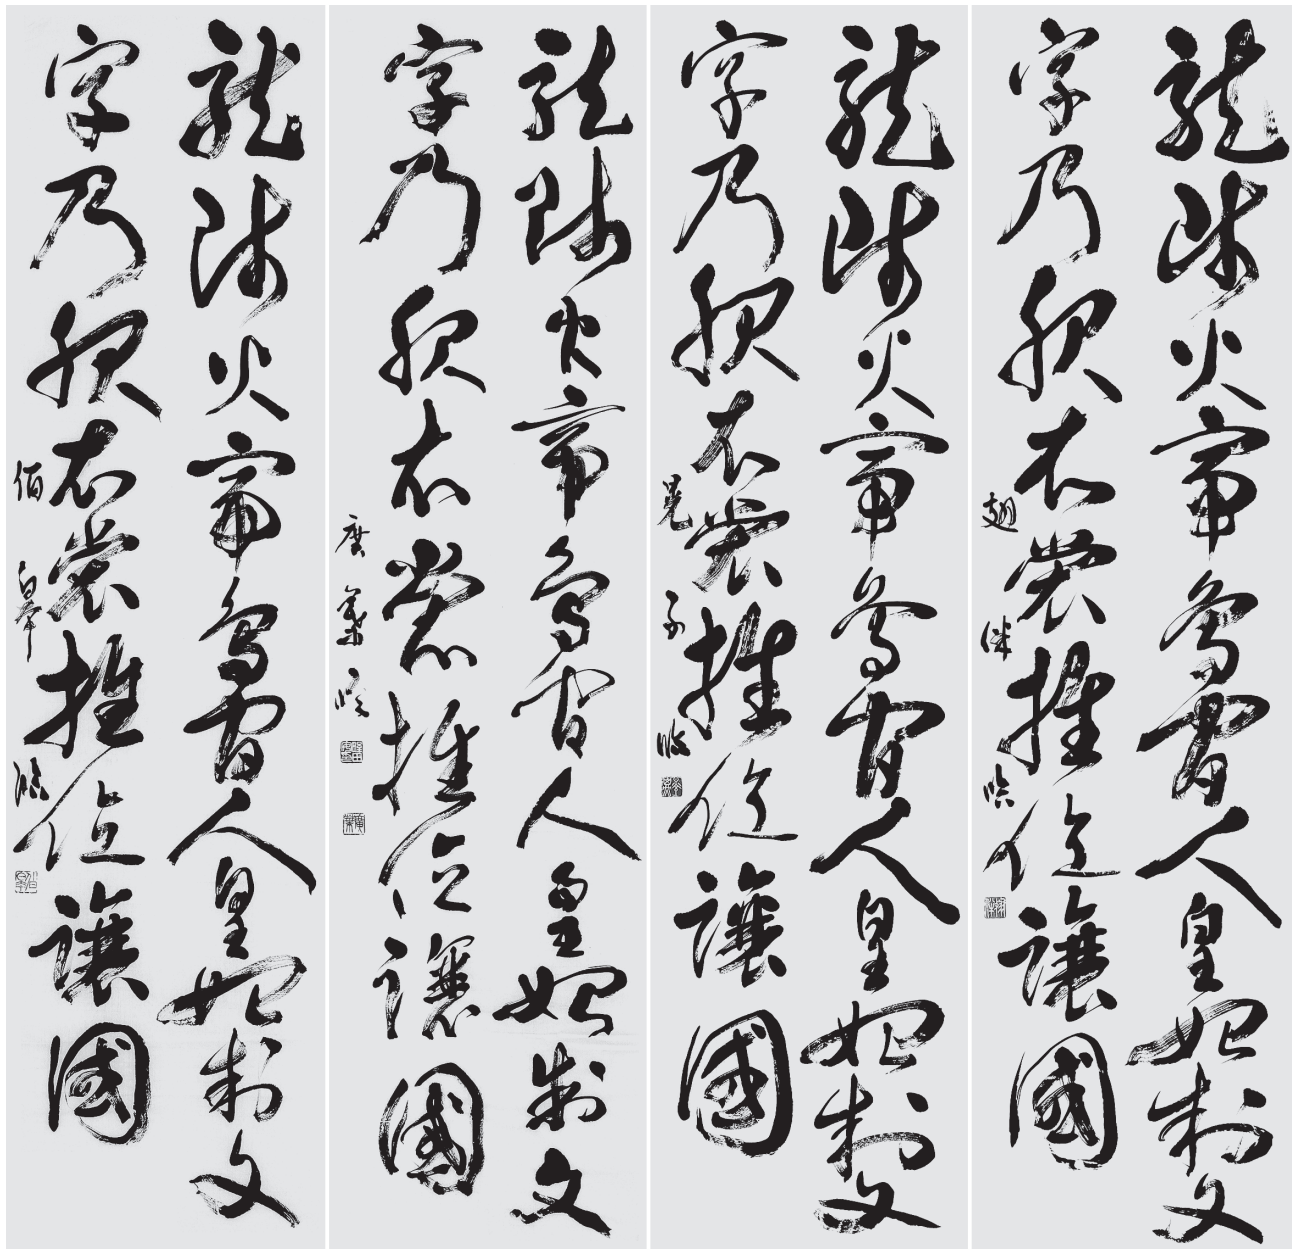 龍師火帝鳥官人皇始制文
字乃服衣裳推位讓國
龍師火帝鳥官人皇始制文
字乃服衣裳推位讓國
晃子臨
龍師火帝鳥官人皇始制文
字乃服衣裳推位讓國
龍師火帝鳥官人皇始制文
字乃服衣裳推位讓國
佰皐臨